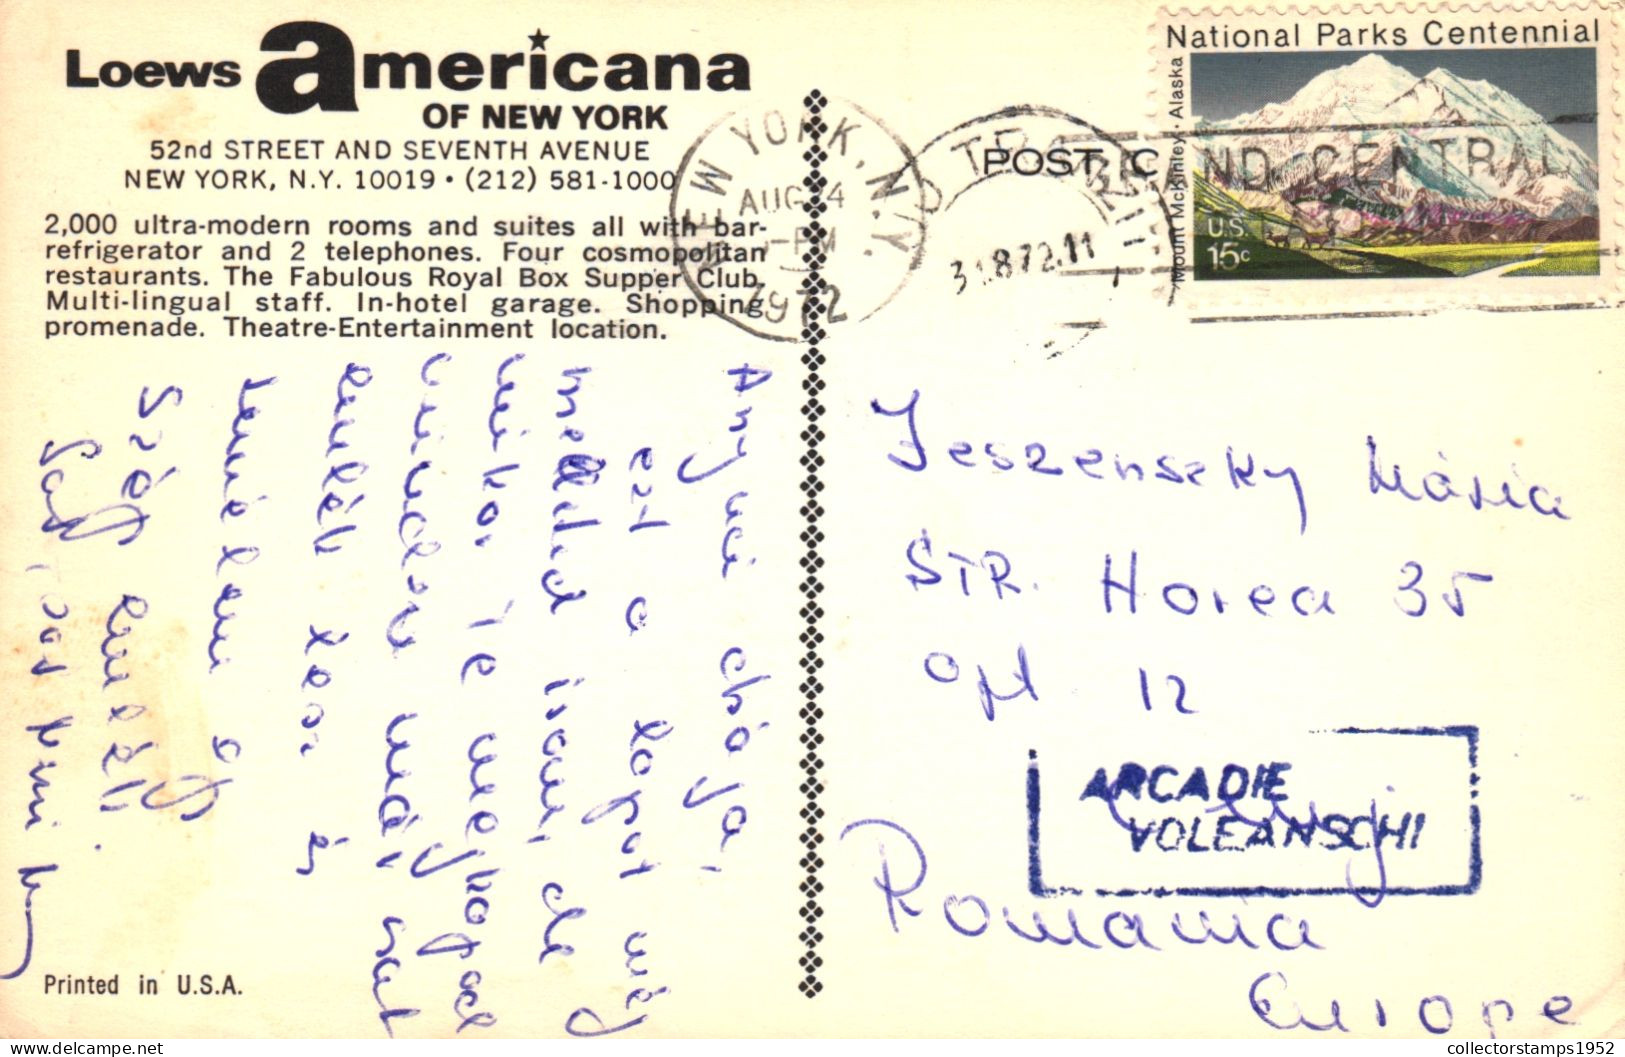 Loews americana
OF NEW YORK
52nd STREET AND SEVENTH AVENUE
NEW YORK, N.Y. 10019 • (212) 581-1000
2,000 ultra-modern rooms and suites all with bar-
refrigerator and 2 telephones. Four cosmopolitan
restaurants. The Fabulous Royal Box Supper Club.
Multi-lingual staff. In-hotel garage. Shopping
promenade. Theatre-Entertainment location.
POST C
National Parks Centennial
Mount McKinley · Alaska
U.S.
15c
NEW YORK, N.Y.
AUG
PM
1972
GRAND CENTRAL
31.8.72.11
Anyuci
ezt a lapot még
melletted írom, de
mikor Te megkapod
már csak
emlék lesz és
Jeszenszky Mária
STR. Horea 35
apt 12
Cluj
ARCADIE
VOLEANSCHI
Romania
Europe
Printed in U.S.A.
collectorstamps1952